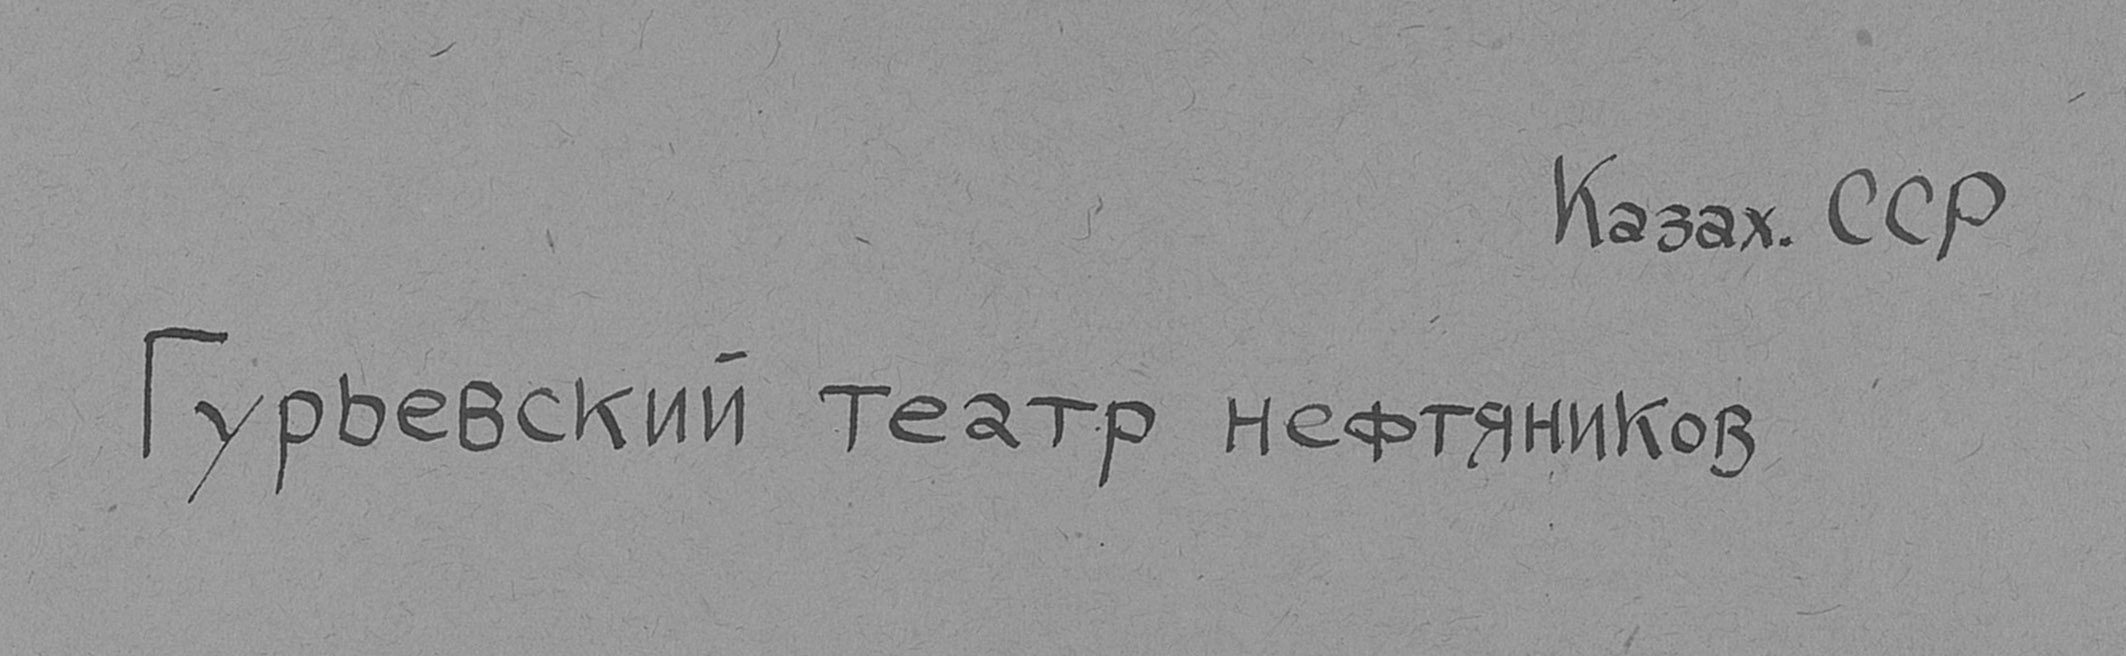 Казах. ССР
Гурьевский театр нефтяников